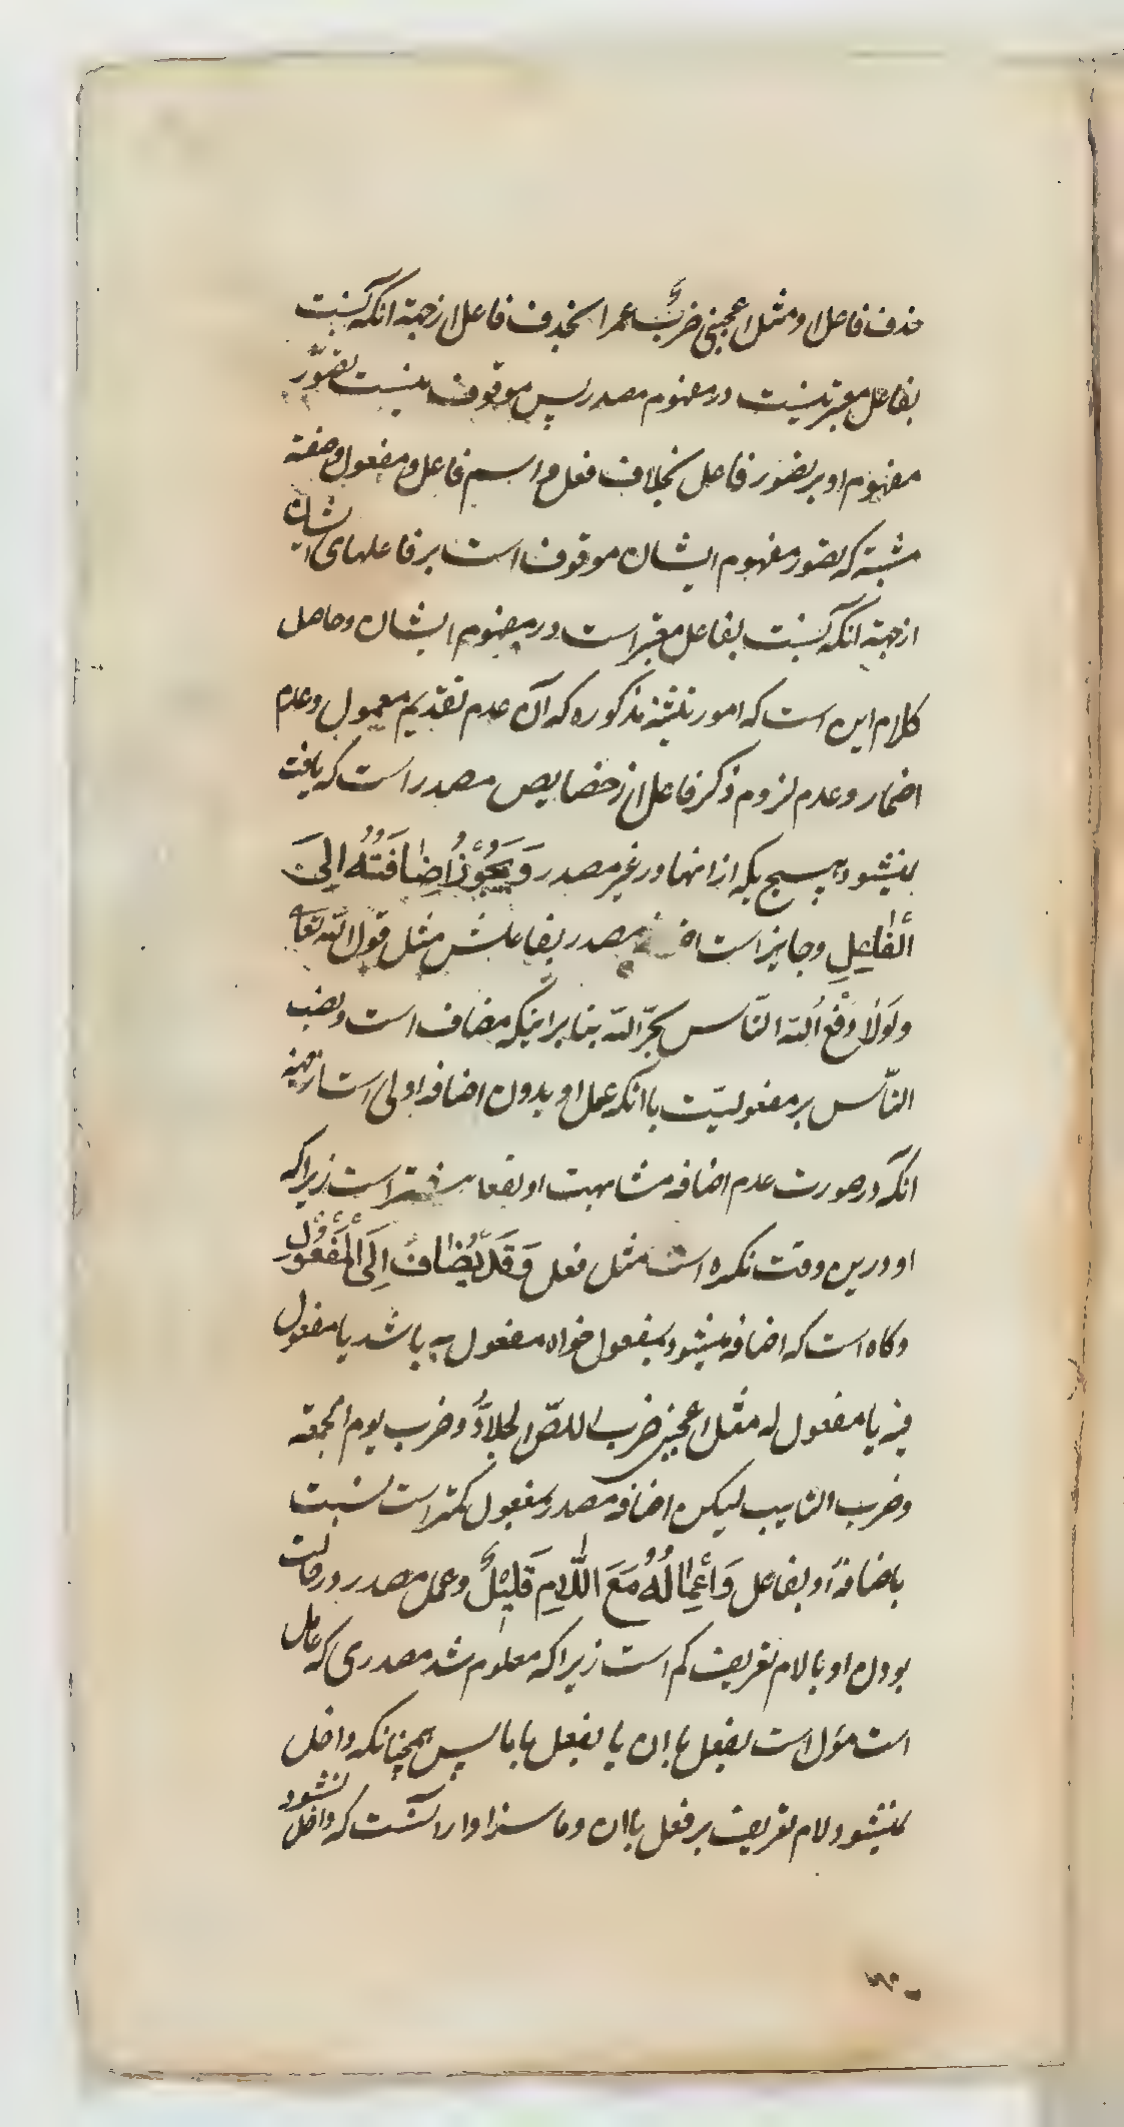 حذف فاعل او مثل اعجبنی ضربٌ عمرا بحذف فاعل از جهة انکه نسبت
بفاعل معتبر نیست در مفهوم مصدر پس موقوف نیست تصوّر
مفهوم او بر تصور فاعل بخلاف فعل و اسم فاعل و مفعول و صفة
مشبّهة که تصور مفهوم ایشان موقوف است بر فاعلهای ایشان
از جهة انکه نسبت بفاعل معتبر است در مفهوم ایشان و حاصل
کلام این است که امور ثلثهٔ مذکوره که آن عدم تقدیم معمول و عدم
اضمار و عدم لزوم ذکر فاعل از خصایص مصدر است که یافت
نمیشود هیچ یکه از انها در غیر مصدر وَیَجُوْزُ اِضٰافَتُهُ اِلیَ
الْفٰاعِلِ و جایز است مصدر بفاعلش مثل قول الله تعا
ولَوْلاٰ دَفْعُ اللّه النّاس بجرّ اللّه بنا بر اینکه مضاف است و نصب
النّاس بر مفعولیّت با انکه عمل او بدون اضافه اولی است از جهة
انکه در صورت عدم اضافه مشابهت او بفعل بیشتر است زیرا که
او درین وقت نکره است مثل فعل وَقَدْ یُضٰافُ اِلَی الْمَفْعُوْلِ
و کاه است که اضافه میشود بمفعول خواه مفعول به باشد یا مفعول
فیه یا مفعول له مثل اعجبنی ضرب اللصّ الجلاّدُ و ضرب یوم الجمعة
و ضرب التادیب لیکن اضافه مصدر بمفعول کمتر است نسبت
باضافهٔ او بفاعل وَاِعْمٰالُهُ مَعَ اللاّٰمِ قَلِیْلٌ و عمل مصدر در حالت
بودن او با لام تعریف کم است زیرا که معلوم شد مصدری که عامل
است مؤل است بفعل با ان یا بفعل با ما پس همچنانکه داخل
نمیشود لام تعریف بر فعل با ان و ما سزاوار انست که داخل نشود